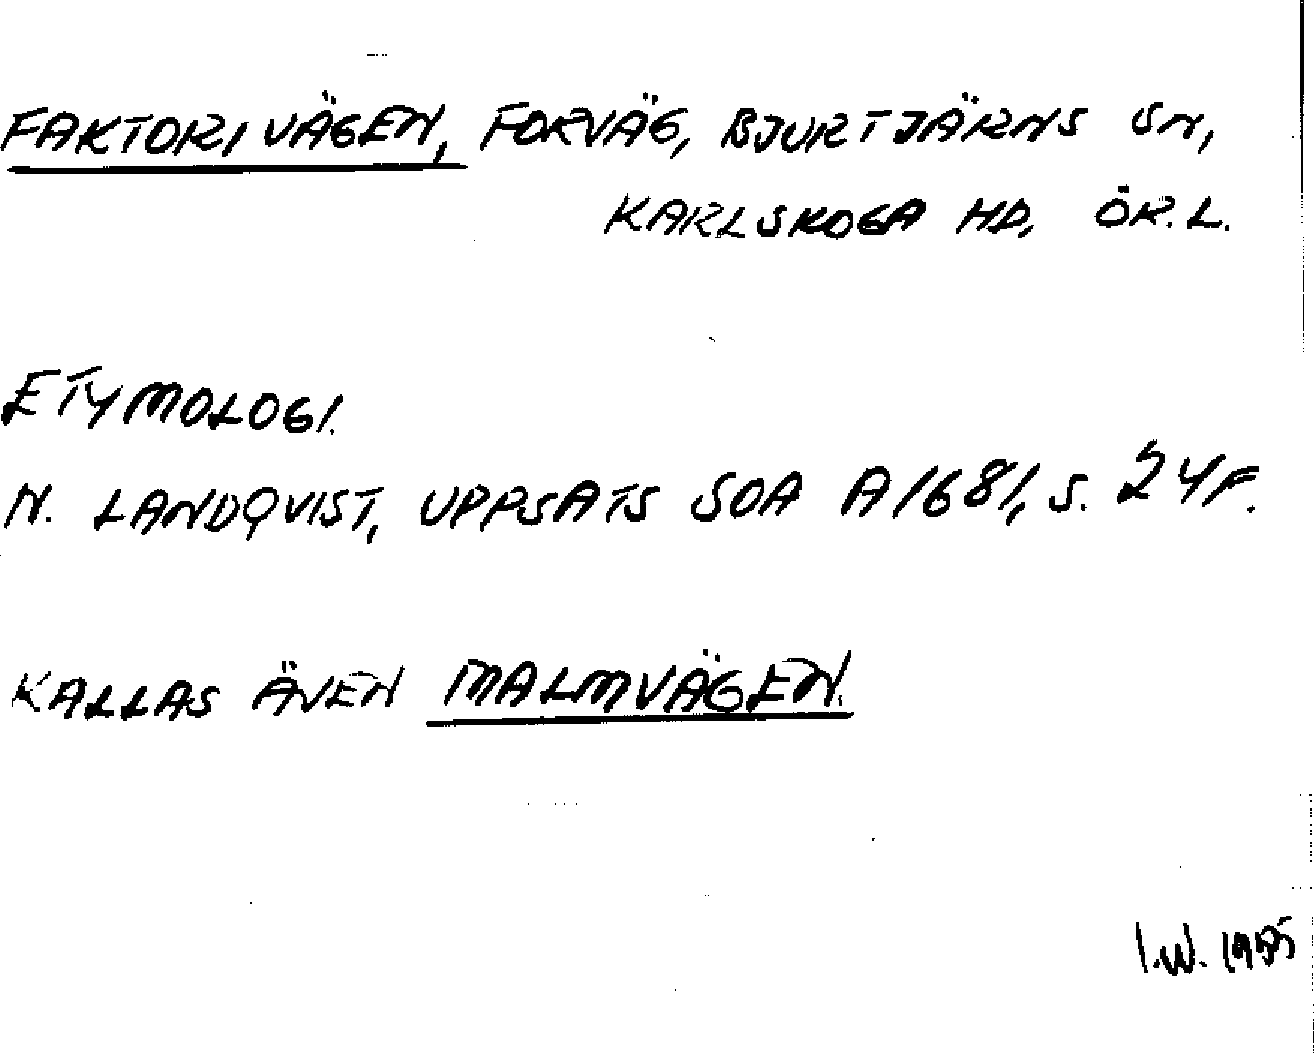 FAKTORIVÄGEN, FORVÄG, BJURTJÄRNS SN,
KARLSKOGA HD, ÖR.L.
ETYMOLOGI.
N. LANDQVIST, UPPSATS SOA A1681, S. 24F.
KALLAS ÄVEN MALMVÄGEN.
I.W.